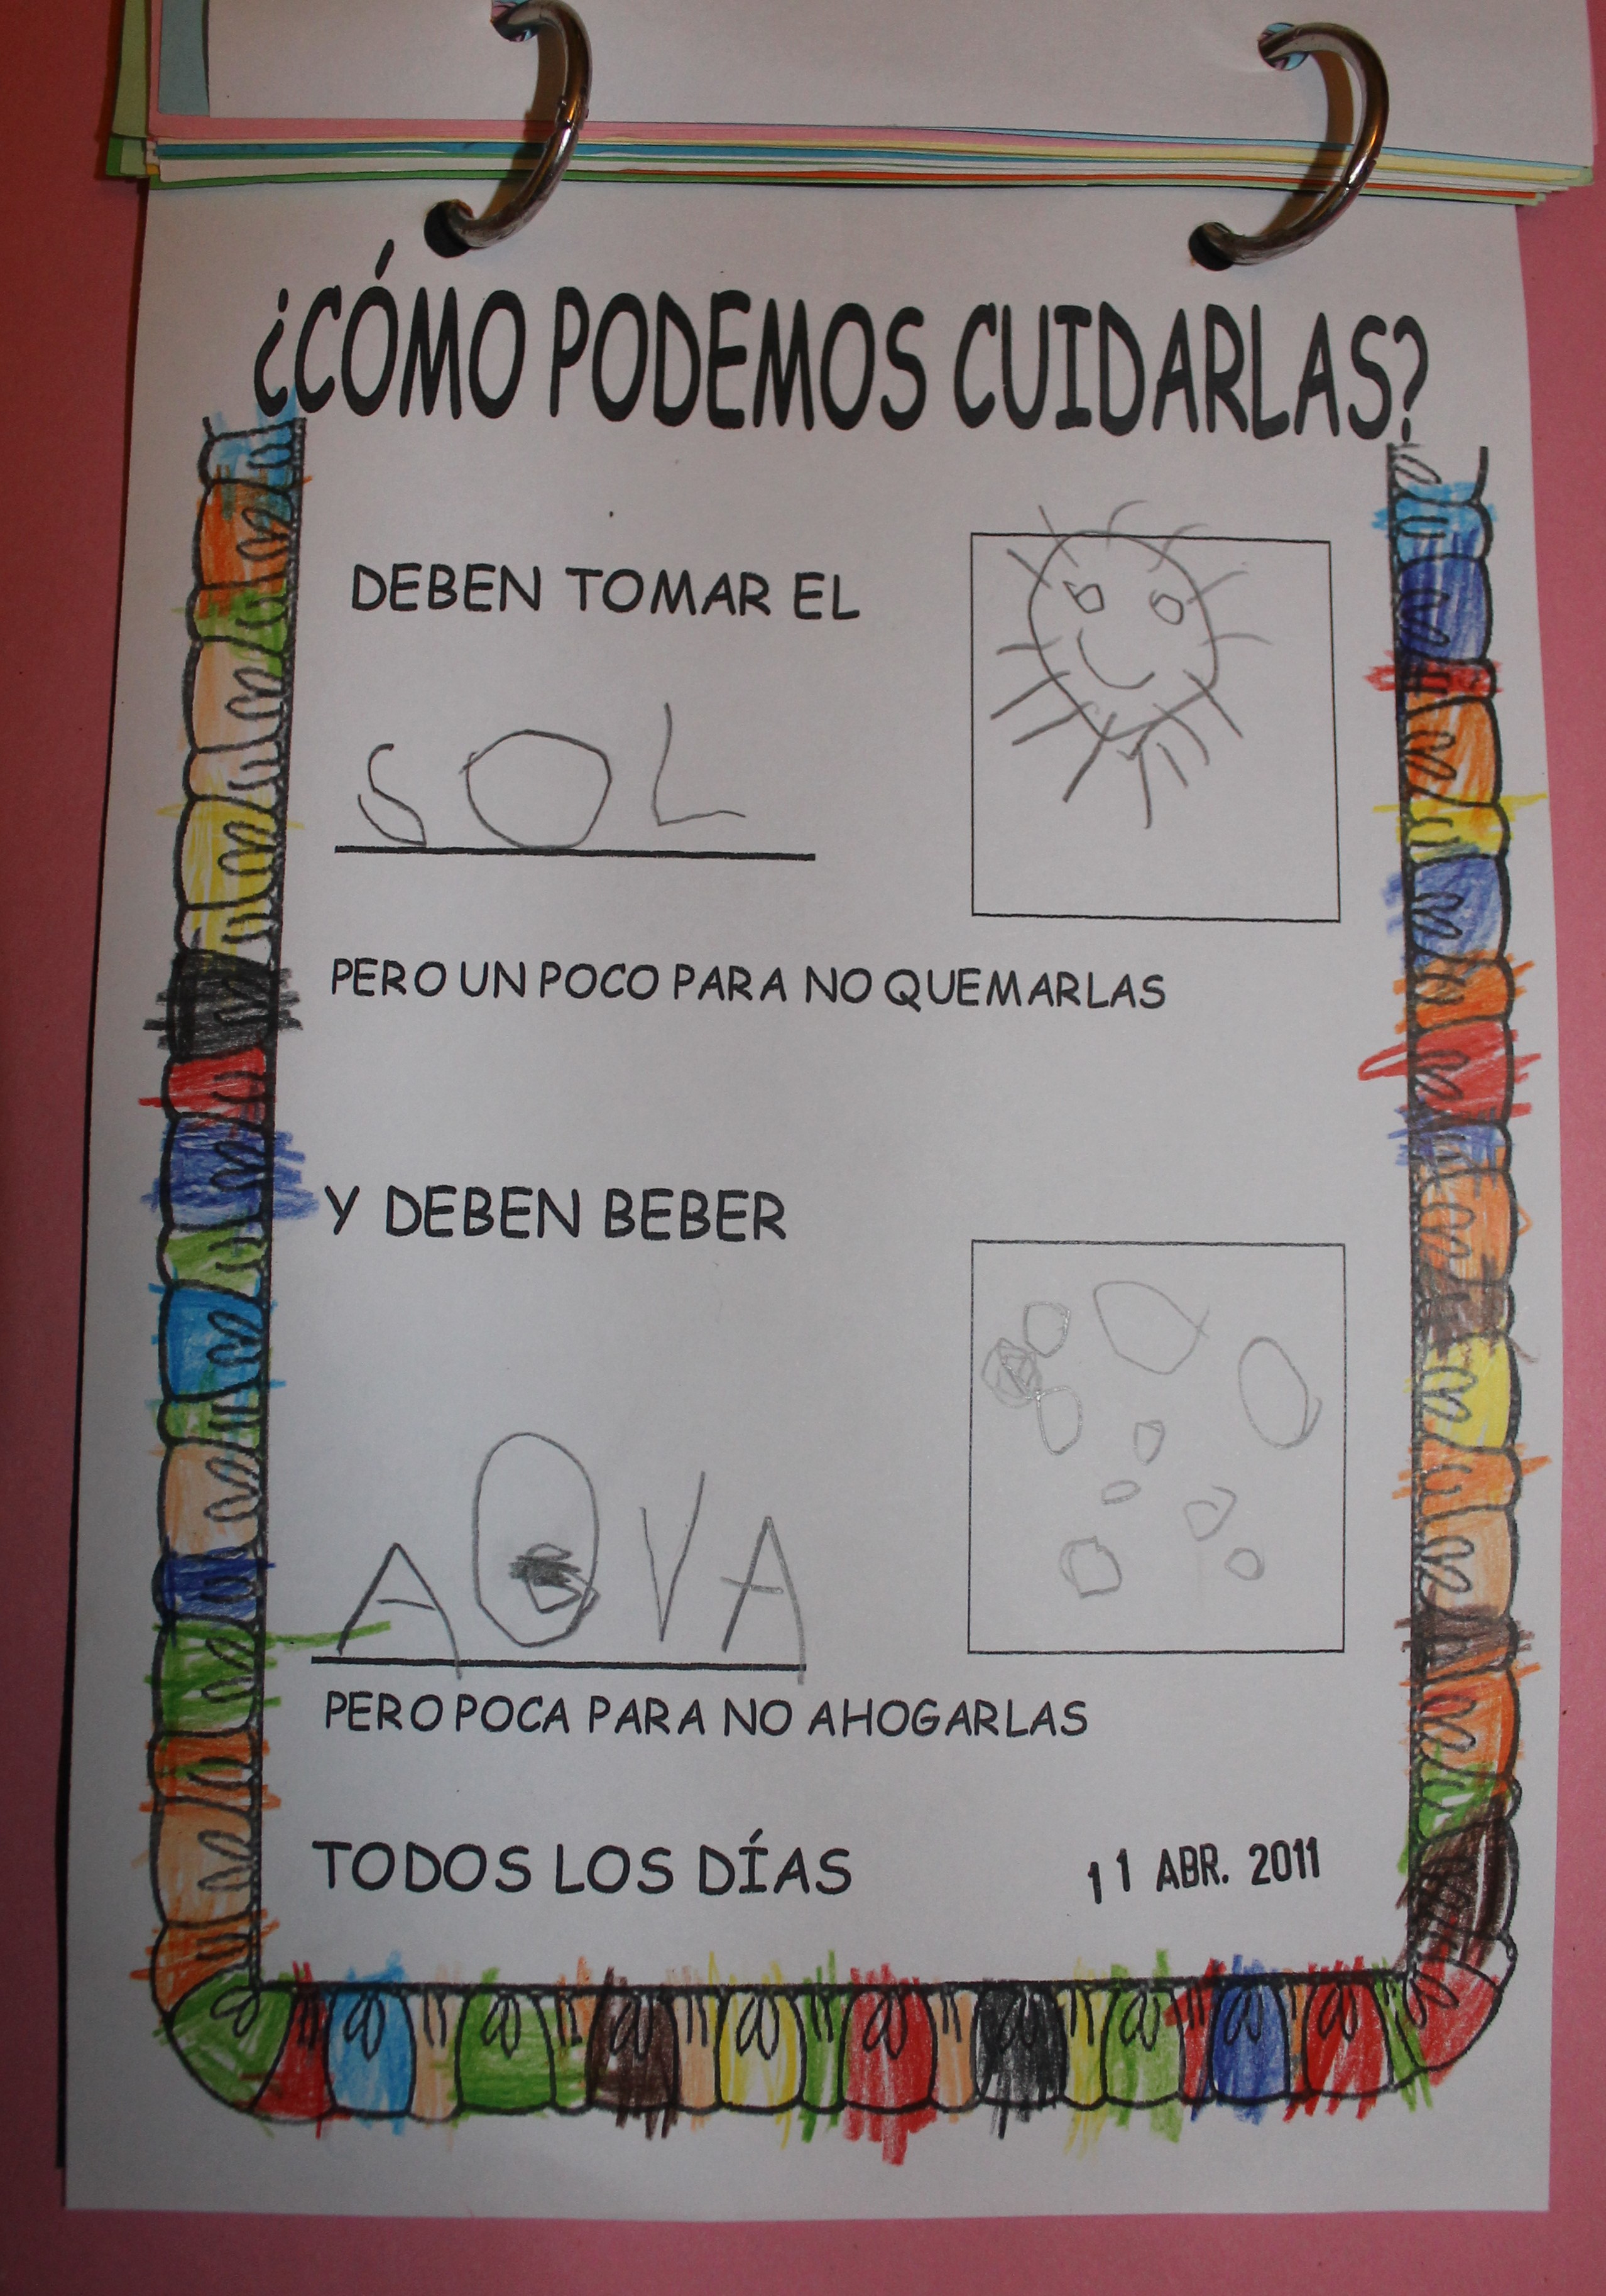 ¿CÓMO PODEMOS CUIDARLAS?
DEBEN TOMAR EL
SOL
PERO UN POCO PARA NO QUEMARLAS
Y DEBEN BEBER
AGVA
PERO POCA PARA NO AHOGARLAS
TODOS LOS DÍAS
11 ABR. 2011